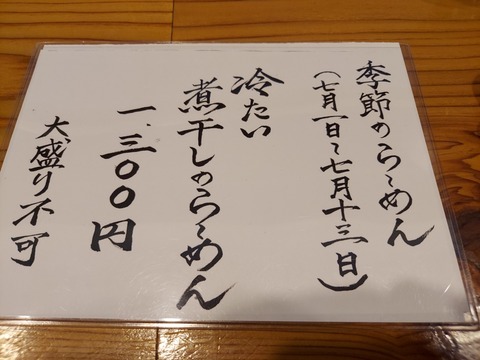 季節のらーめん
(七月一日～七月十三日)
冷たい
煮干しのらーめん
一、三〇〇円
大盛り不可